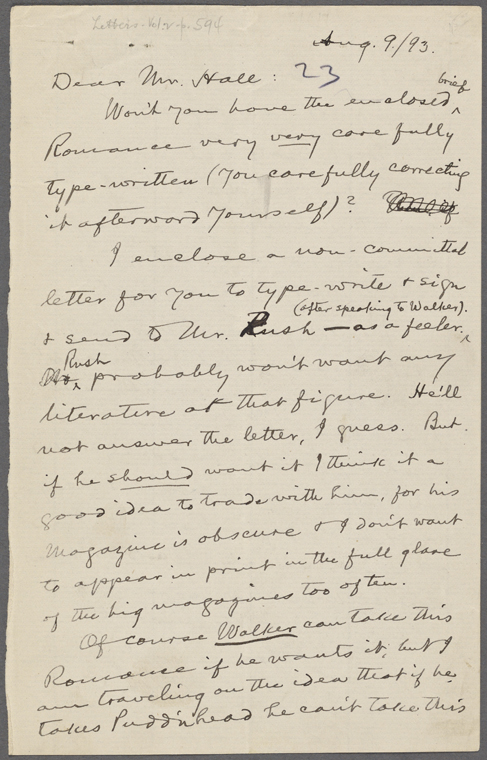 Letters - Vol 2 - p. 594
Aug. 9/93.
23
Dear Mr. Hall:
Won't you have the enclosed brief
Romance very very carefully
type-written (you carefully correcting
it afterward yourself)?
I enclose a non-committal
letter for you to type-write & sign
(after speaking to Walker).
& send to Mr. Rush — as a feeler.
Rush probably won't want any
literature at that figure. He'll
not answer the letter, I guess. But
if he should want it I think it a
good idea to trade with him, for his
magazine is obscure & I don't want
to appear in print in the full glare
of the big magazines too often.
Of course Walker can take this
Romance if he wants it, but I
am traveling on the idea that if he
takes Pudd'nhead he can't take this